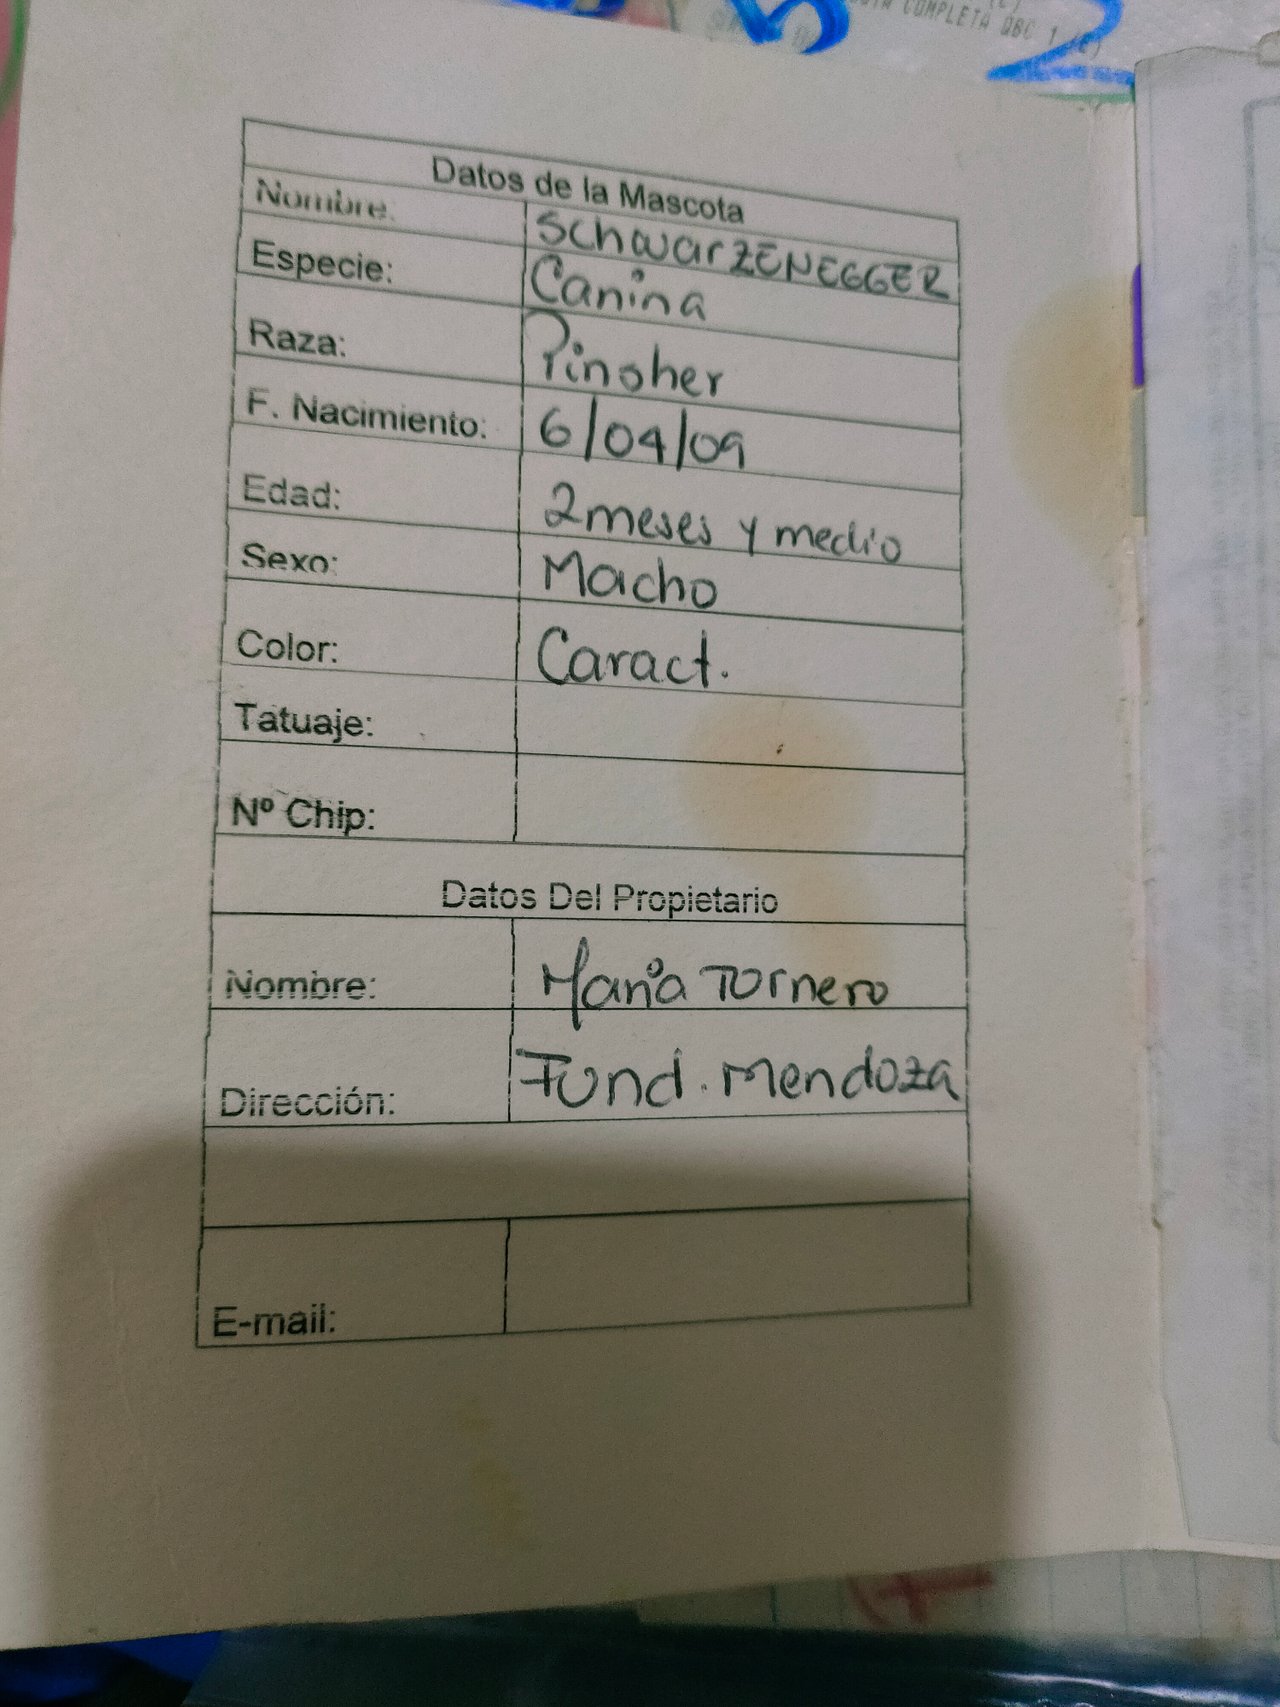 COMPLETA QBC 1 (E)
Datos de la Mascota
Nombre: SchwarZENEGGER
Especie: Canina
Raza: Pinsher
F. Nacimiento: 6/04/09
Edad: 2 meses y medio
Sexo: Macho
Color: Caract.
Tatuaje:
Nº Chip:
Datos Del Propietario
Nombre: María Tornero
Dirección: Fund. Mendoza
E-mail: